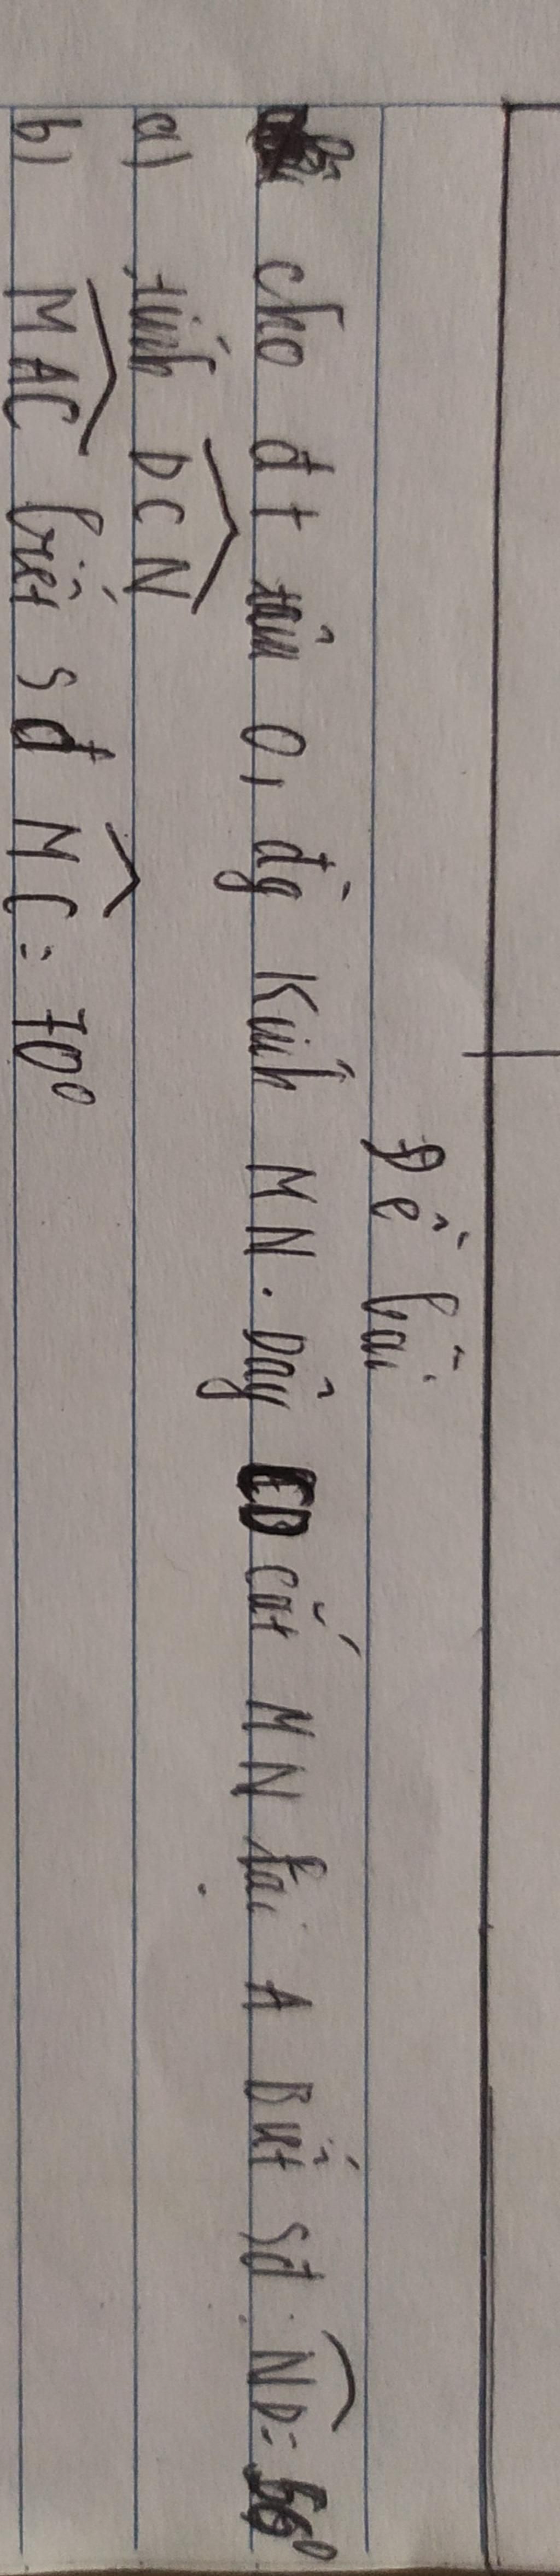 Đề bài
cho đt tâm O, đg Kính MN. Dây CD cắt MN tại A Biết sđ ND = 56⁰
a) tính DCN
b) MAC biết sđ MC = 70⁰